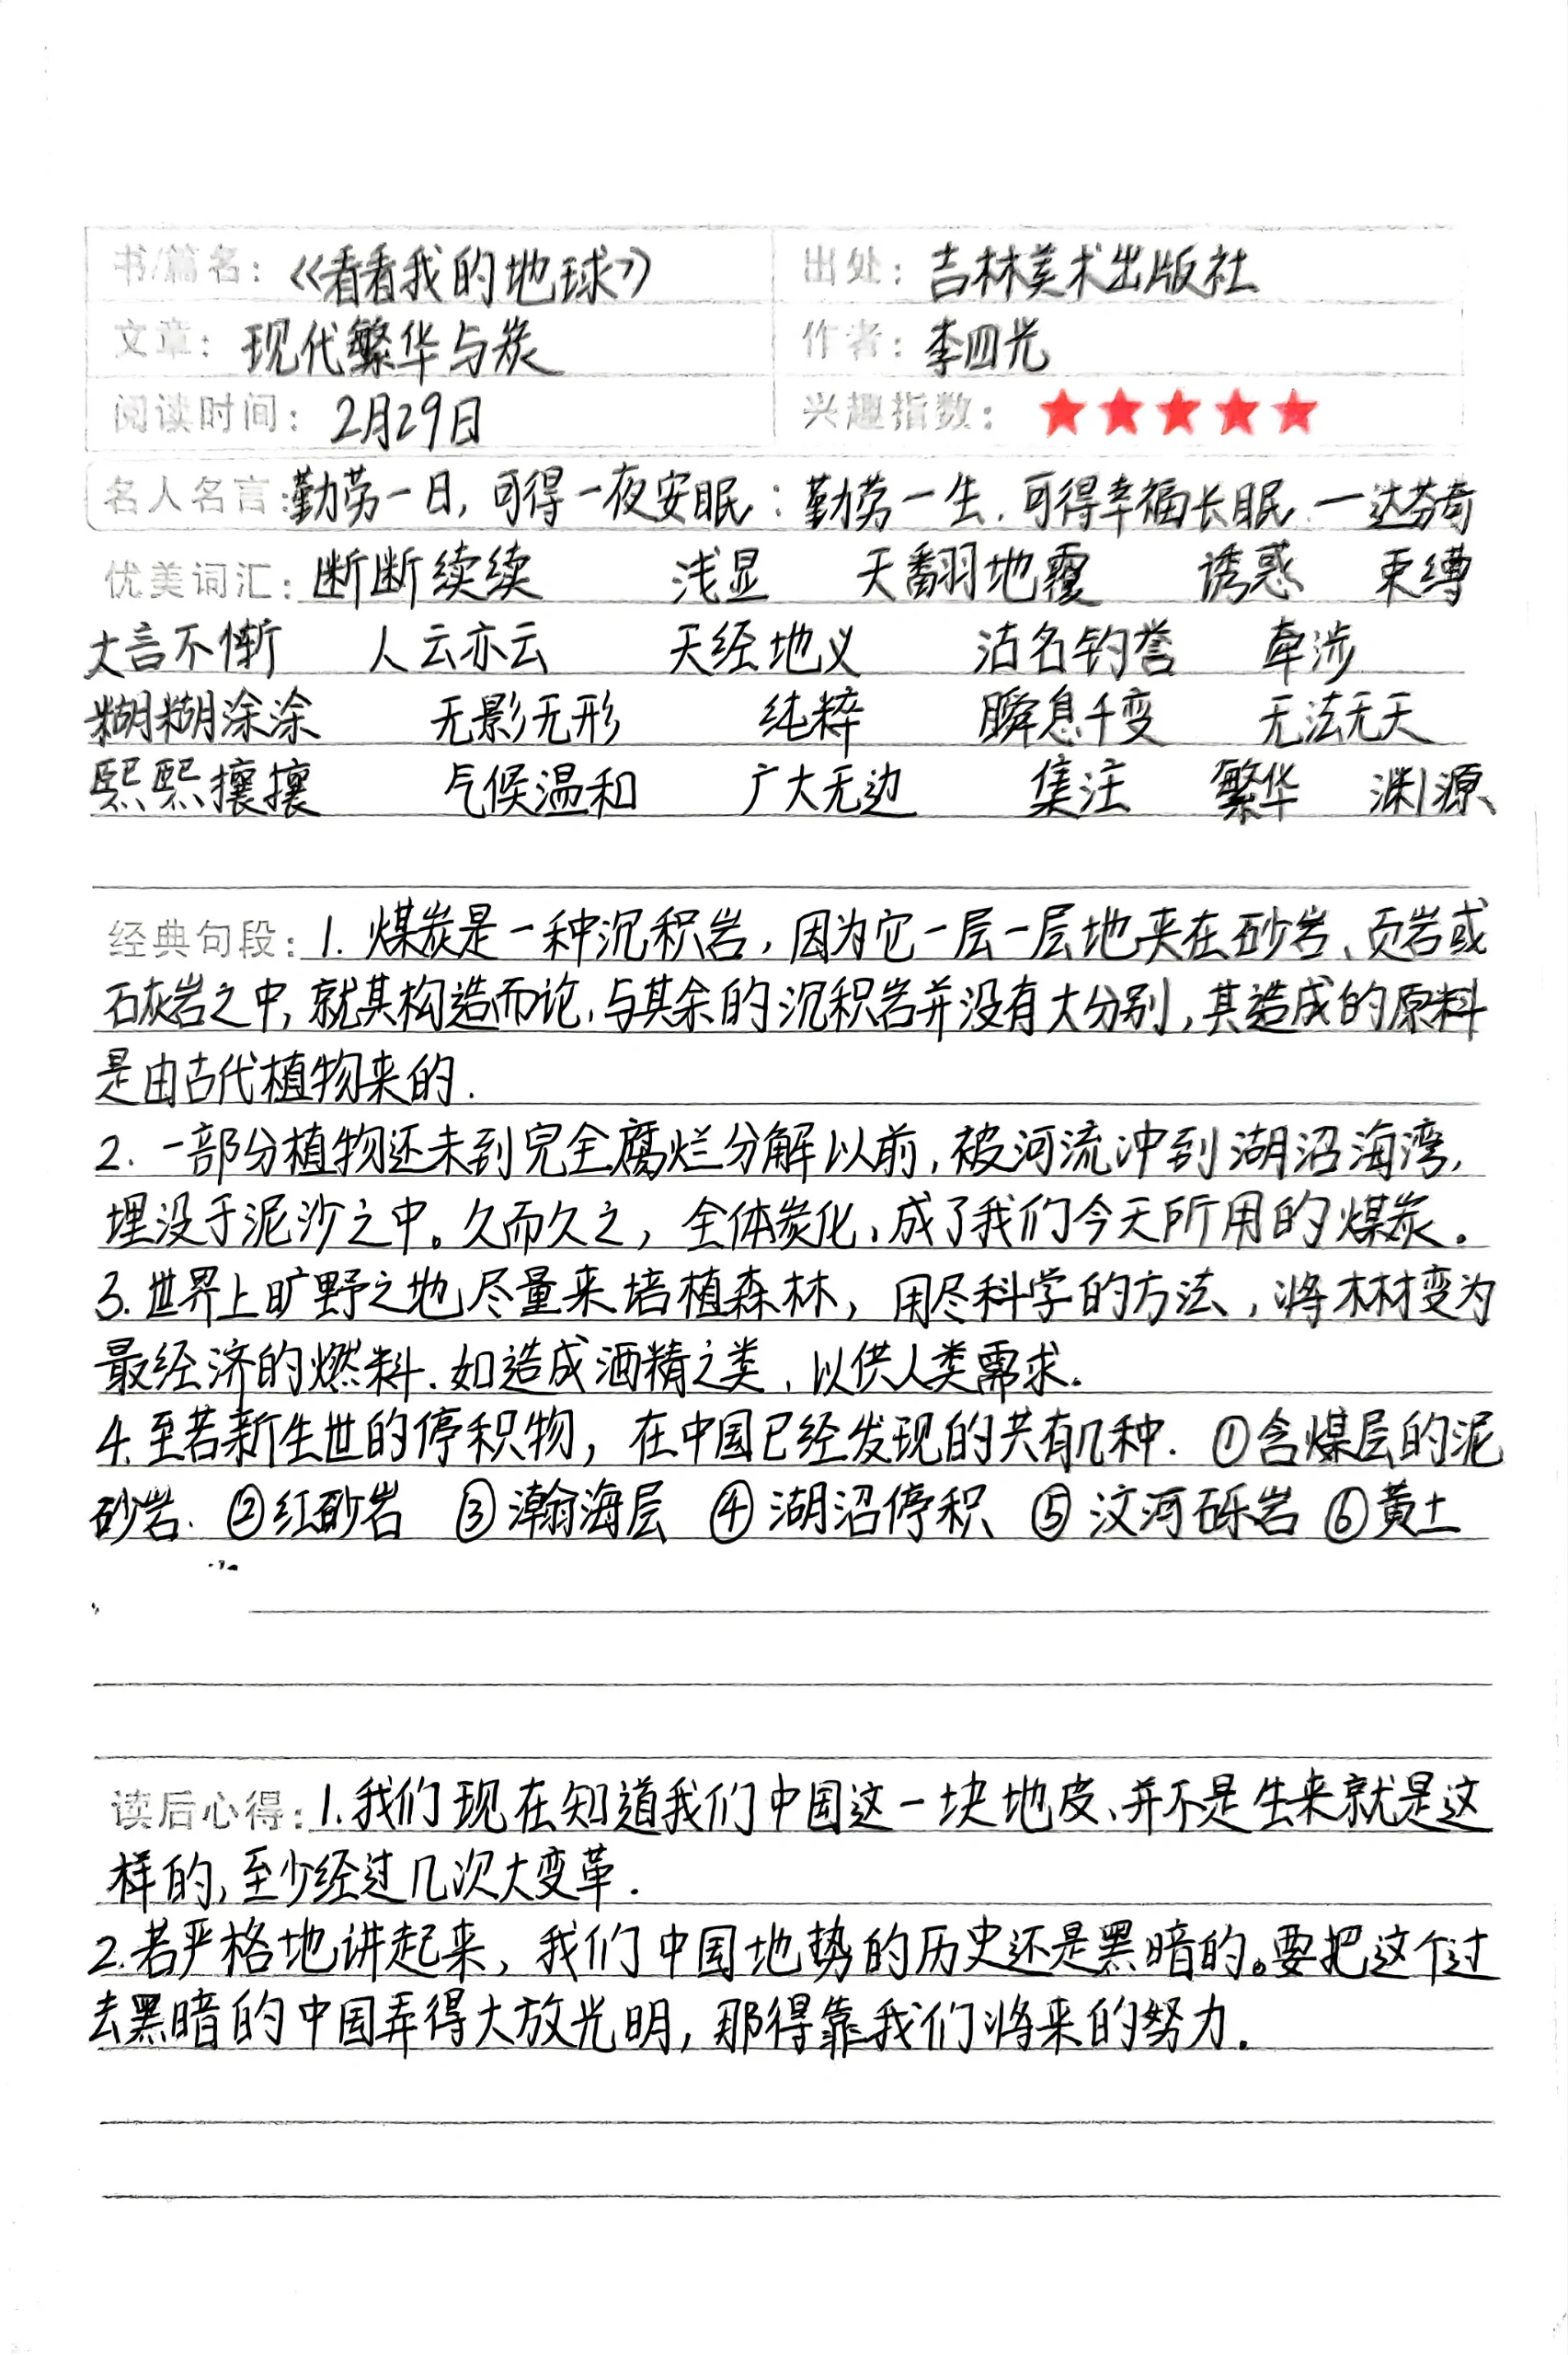 书/篇名：《看看我的地球》 出处：吉林美术出版社
文章：现代繁华与炭 作者：李四光
阅读时间：2月29日 兴趣指数：★★★★★
名人名言：勤劳一日，可得一夜安眠：勤劳一生，可得幸福长眠.一达芬奇
优美词汇：断断续续 浅显 天翻地覆 诱惑 束缚
大言不惭 人云亦云 天经地义 沽名钓誉 牵涉
糊糊涂涂 无影无形 纯粹 瞬息千变 无法无天
熙熙攘攘 气候温和 广大无边 集注 繁华 渊源、
经典句段：1. 煤炭是一种沉积岩，因为它一层一层地夹在砂岩、页岩或
石灰岩之中，就其构造而论，与其余的沉积岩并没有大分别，其造成的原料
是由古代植物来的.
2. 一部分植物还未到完全腐烂分解以前，被河流冲到湖沼海湾，
埋没于泥沙之中。久而久之，全体炭化，成了我们今天所用的煤炭。
3. 世界上旷野之地尽量来培植森林，用尽科学的方法，将木材变为
最经济的燃料.如造成酒精之类，以供人类需求.
4.至若新生世的停积物，在中国已经发现的共有几种. ①含煤层的泥
砂岩. ②红砂岩 ③瀚海层 ④湖沼停积 ⑤汶河砾岩 ⑥黄土
读后心得：1.我们现在知道我们中国这一块地皮、并不是生来就是这
样的，至少经过几次大变革.
2.若严格地讲起来，我们中国地势的历史还是黑暗的。要把这个过
去黑暗的中国弄得大放光明，那得靠我们将来的努力.